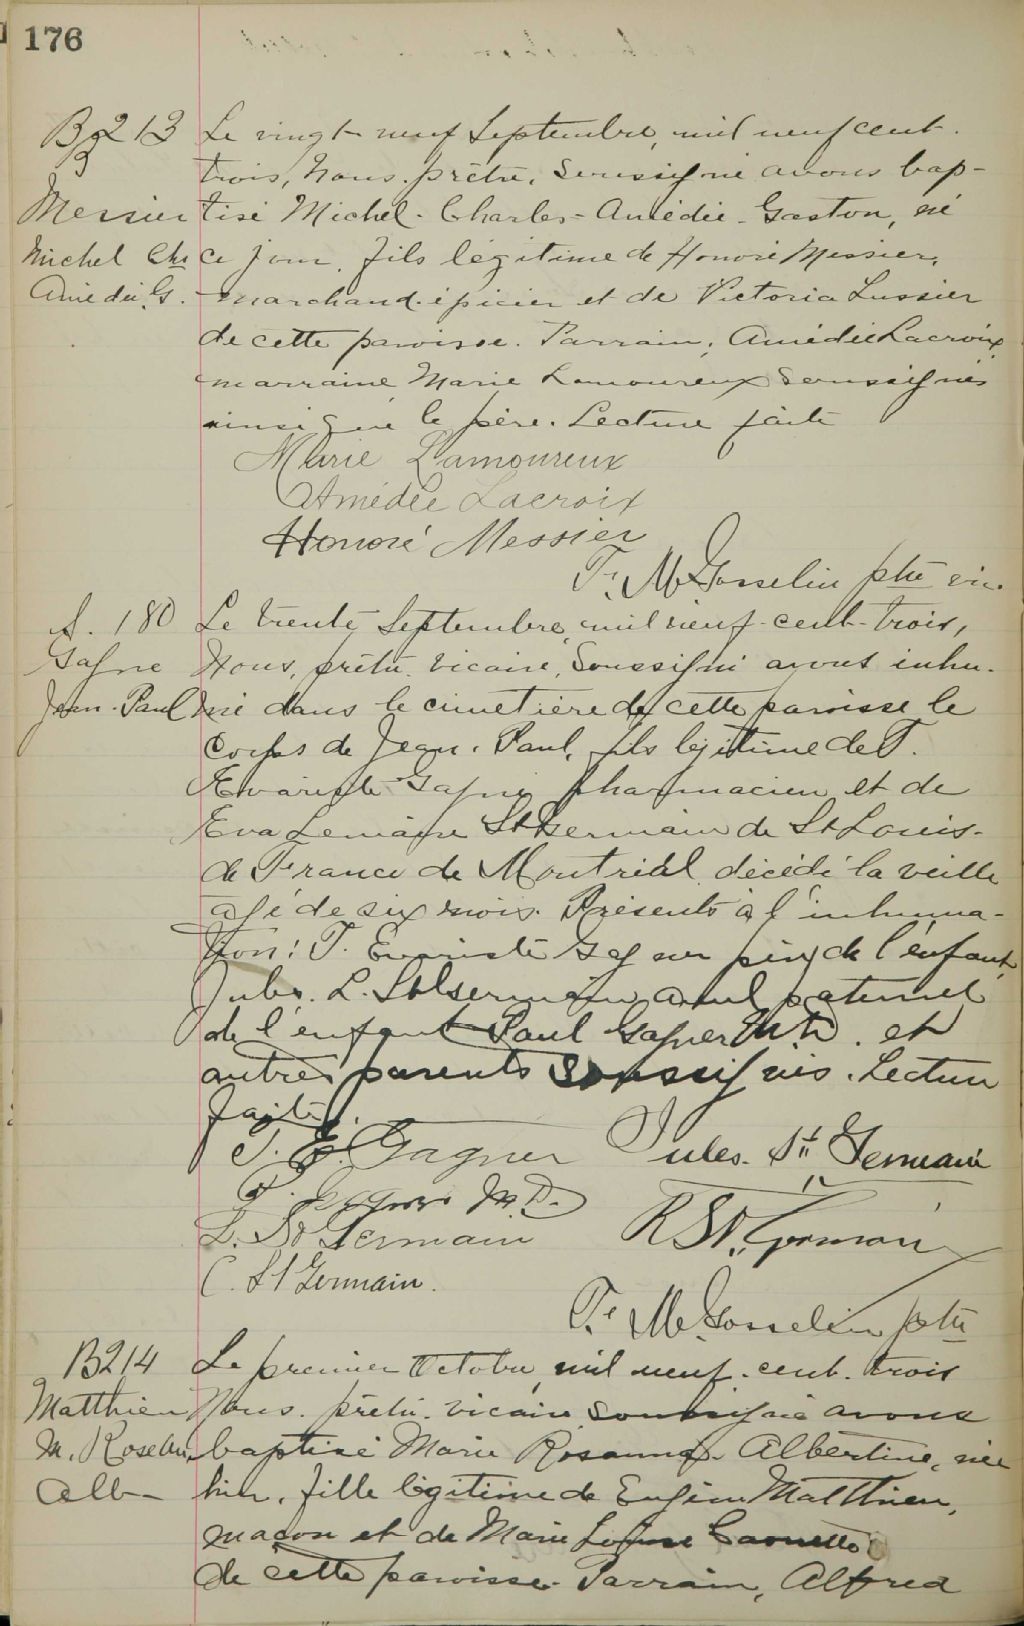 176
B 213
B
Messier
Michel Chs
Amédée G.
Le vingt-neuf Septembre, mil neuf cent-
trois, Nous, prêtre, soussigné avons bap-
tisé Michel-Charles-Amédée-Gaston, né
ce jour, fils légitime de Honoré Messier,
marchand-épicier et de Victoria Lussier
de cette paroisse. Parrain, Amédée Lacroix,
marraine Marie Lamoureux soussignés
ainsi que le père. Lecture faite
Marie Lamoureux
Amédée Lacroix
Honoré Messier
F. M. Gosselin ptre vic.
S. 180
Gagne
Jean-Paul
Le trente Septembre, mil neuf-cent-trois,
Nous, prêtre vicaire, soussigné avons inhu-
mé dans le cimetière de cette paroisse le
corps de Jean-Paul, fils légitime de T.
Evariste Gagné pharmacien et de
Eva St Germain de St Louis-
de France de Montréal décédé la veille
agé de six mois. Présents à l'inhuma-
tion: T. Evariste père de l'enfant,
Jules. L. St Germain aieul paternel
de l'enfant Paul Gagner M.D. et
autres parents soussignés. Lecture
faite.
T. E. Gagner
Jules. St Germain
P. Gagner M.D.
L. St Germain
R St. Germain
C. St Germain.
F. M. Gosselin ptre
B214
Matthieu
M. Rosean
Alb
Le premier Octobre, mil neuf-cent-trois
Nous, prêtre-vicaire soussigné avons
baptisé Marie Rosanna Albertine, née
hier, fille légitime de Eugène Matthieu,
maçon et de Marie
de cette paroisse. Parrain, Alfred